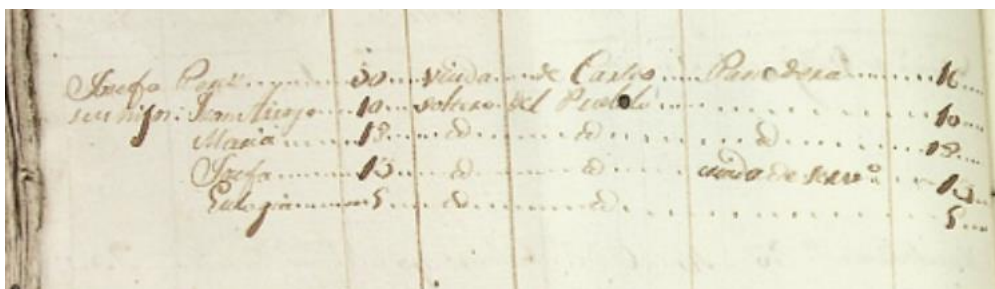 Josefa ..... 50 .... viuda .... de Carlos .... Panadera ..... 16 ...
sus hijos: ..... 10 .... soltero del Pueblo ..... 10 ...
Maria ..... 18 .... id ..... id ..... id ..... 18 ...
Josefa ..... 13 .... id ..... id ..... criada de serv.º ..... 13 ...
Eulogia ..... 5 .... id ..... id ..... 5 ...